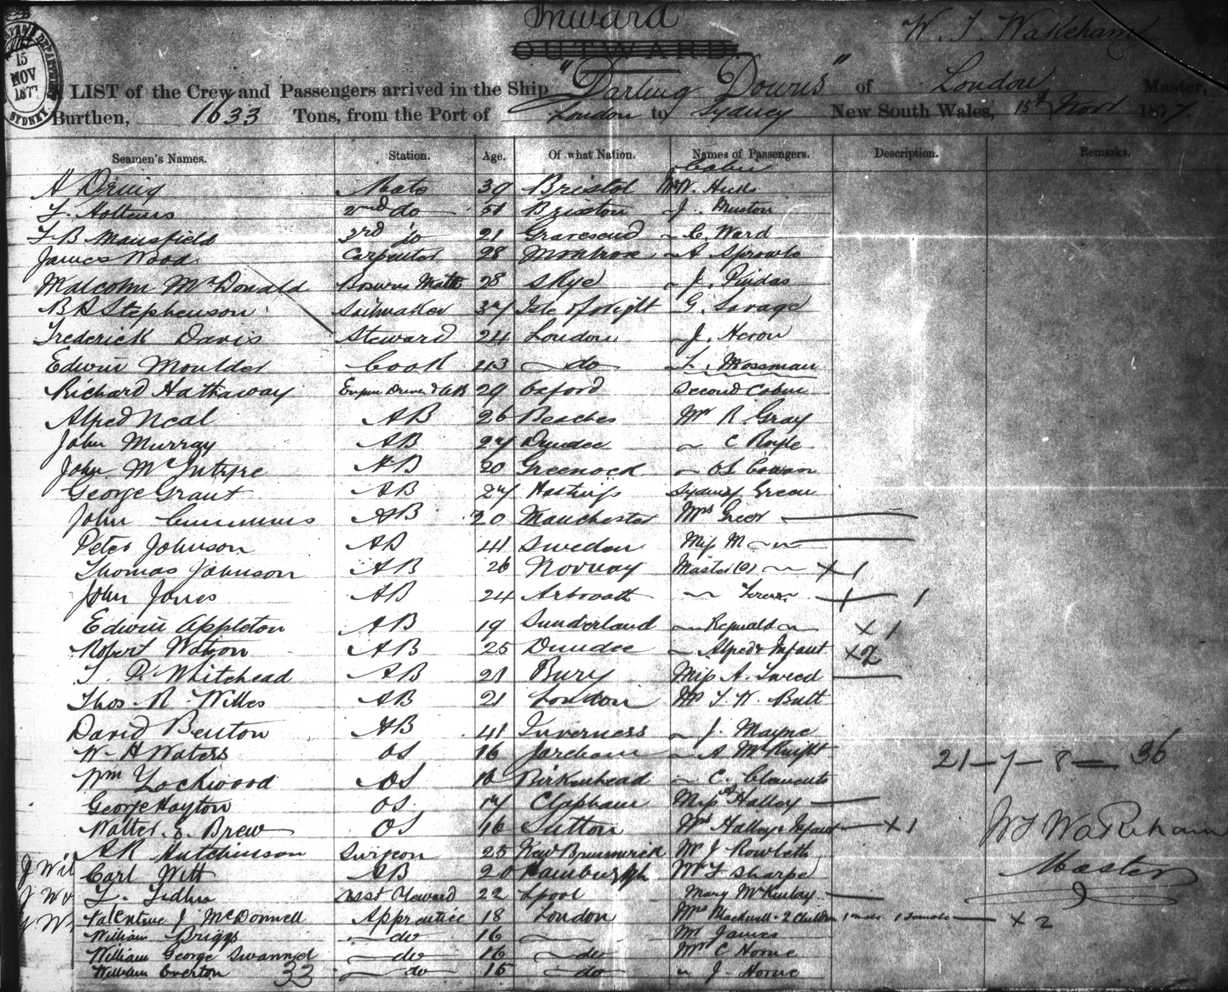 Inward
OUTWARD
W. J. Wakeham
15
NOV
1877
SYDNEY
LIST of the Crew and Passengers arrived in the Ship "Darling Downs" of London Master,
Burthen, 1633 Tons, from the Port of London to Sydney New South Wales, 15th Novr 1877
Seamen's Names. Station. Age. Of what Nation. Names of Passengers. Description. Remarks.
Cabin
A Mate 39 Bristol Hicks
2nd do 51 Brixton J.
B Mansfield 3rd do 21 Gravesend C. Ward
James Wood Carpenter 28 Montrose A Sprowle
Malcolm McDonald Boswns Mate 28 Skye J.
Stephenson Sailmaker 37 Isle of Wight G. Savage
Frederick Davis Steward 24 London J. Heron
Edwin Moulder Cook 43 do Mossman
Richard Hathaway Engine Driver & AB 29 Oxford Second Cabin
Alfred Neal AB 26 Mr R. Gray
John Murray AB 27 Dundee C
John McIntyre AB 20 Greenock Cowan
George Grant AB 27 Hastings Sydney Green
John Cummins AB 20 Manchester Mrs Greer
Peter Johnson AB 41 Sweden Miss M
Thomas Johnson AB 26 Norway Master x 1
John Jones AB 24 Arbroath 1
Edwin Appleton AB 19 Sunderland Reginald x 1
Robert Watson AB 25 Dundee Alfred & Infant x 2
Whitehead AB 21 Bury Miss A. Tweed
Thos R. Wilkes AB 21 London Mr Butt
David Benton AB 41 Inverness J. Mayne
W. H Waters OS 16 A McKnight
21-7-8-36
Wm Lockwood OS Birkenhead C. Clements
George Hayton OS 17 Clapham Miss Halley
Walter Brew OS 16 Sutton Mrs Halley & Infant x1
W J Wakeham
Hutchinson Surgeon 25 New Brunswick Mr J
Master
Carl Witt AB 20 Hamburgh Mr Sharpe
Asst Steward 22 Lpool Mary McKinlay
Valentine J. McDonnell Apprentice 18 London Mrs Blackwell 2 Children 1 male 1 female x 2
William Briggs do 16 Mr James
William George Swannel do 16 do C Horne
William Everton do 15 do J. Horne
33